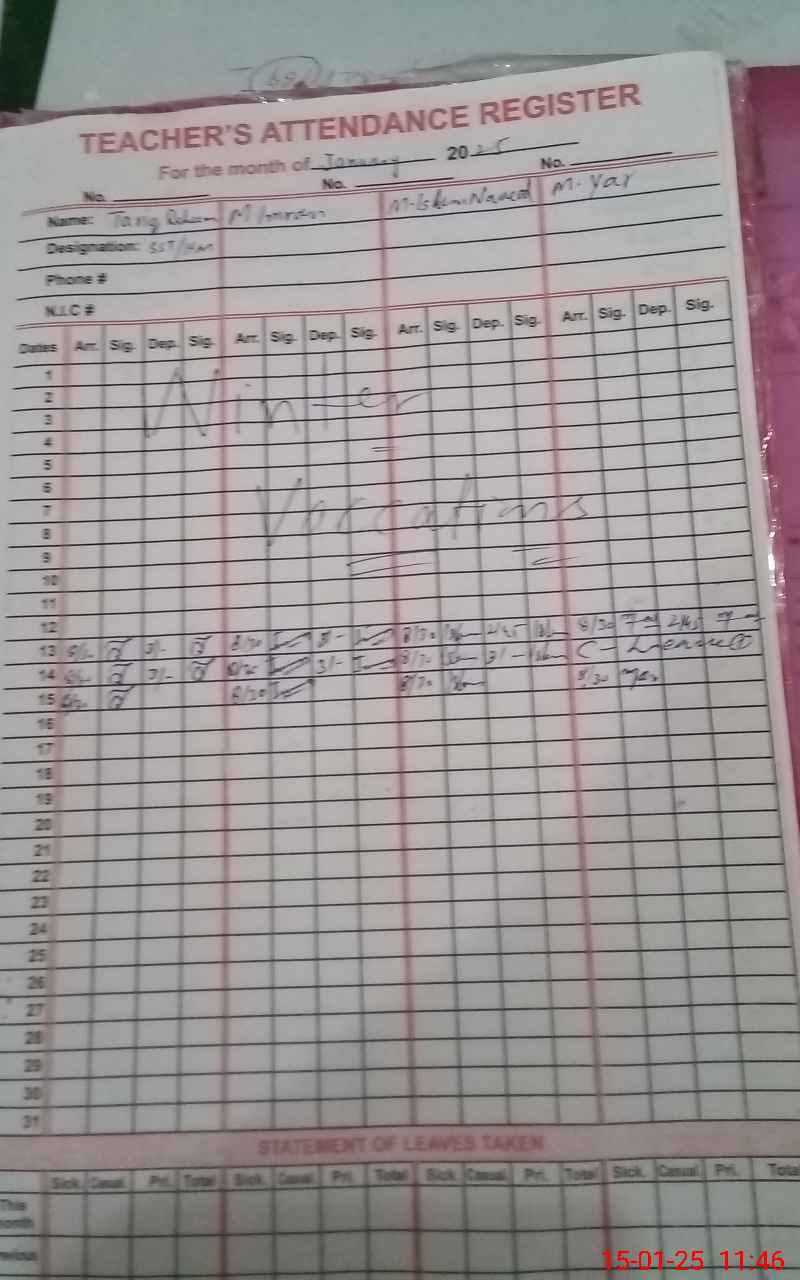 TEACHER'S ATTENDANCE REGISTER
For the month of January 2025
No. No. No.
Name: Tariq M Imran M. Yar
Designation: SST/
Phone #
N.I.C #
Dates Arr. Sig. Dep. Sig. Arr. Sig. Dep. Sig. Arr. Sig. Dep. Sig. Arr. Sig. Dep. Sig.
1
2 Winter
3
4
5
6
7 Vaccations
8
9
10
11
12
13 8/30 3/- 8/30 3/- 8/30 2/45 8/30 2/45
14 8/30 3/- 8/30 3/- 8/30 3/- C-Leave ①
15 8/30 8/30 8/30 8/30
16
17
18
19
20
21
22
23
24
25
26
27
28
29
30
31
STATEMENT OF LEAVES TAKEN
Sick. Casual Pri. Total Sick. Casual Pri. Total Sick. Casual Pri. Total Sick. Casual Pri. Total
This
month
15-01-25 11:46